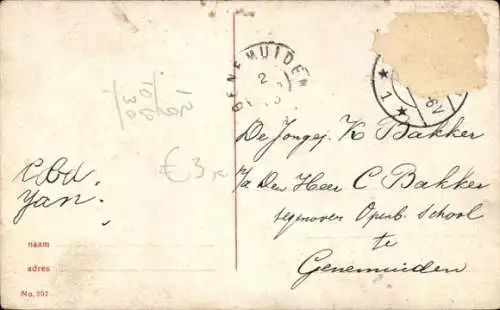 GENEMUIDEN
2
6V
1
De Jongej. K Bakker
p/a Den Heer C Bakker
tegenover Openb. School
te
Genemuiden
Jan.
€ 3,-
naam
adres
No. 207